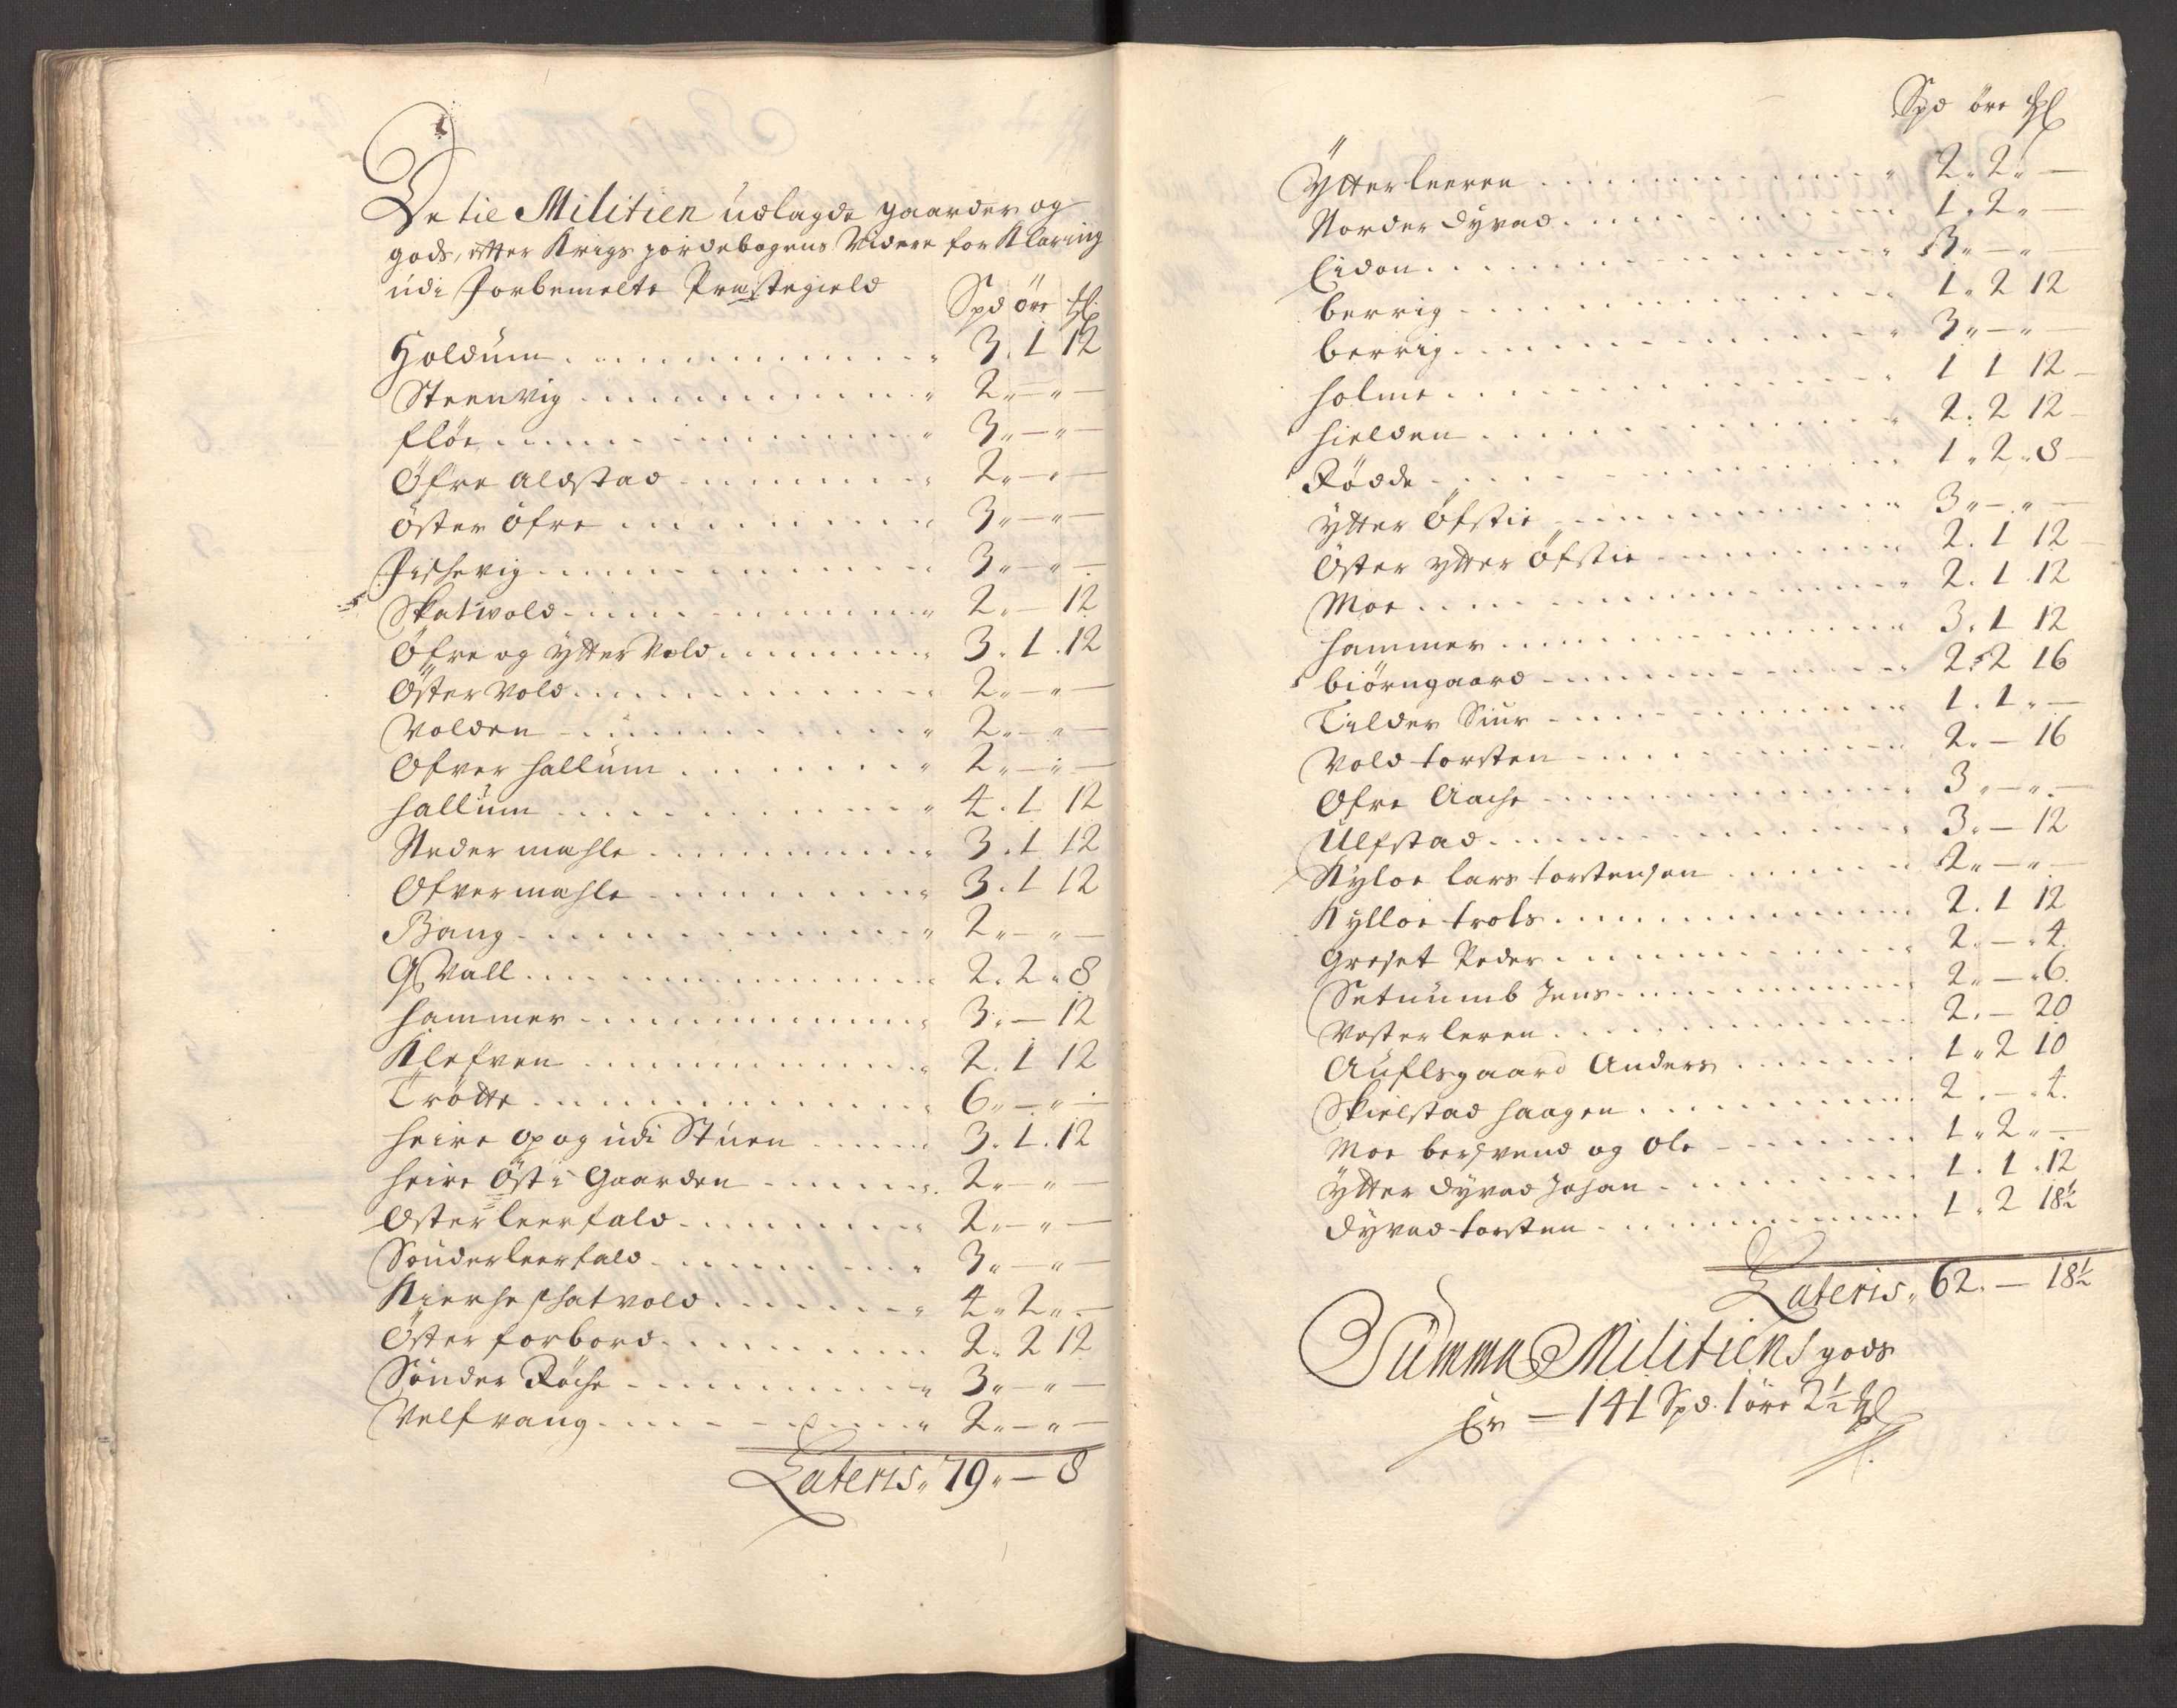 De tie Militien udlagde gaarder og
gods, efter Krigs jordebogens Videre forklaring
udi Forbemelte Præstegield
Spd öre
Holdum 3. 1 12
Steenvig 2 " — " —
fløe 3 " — " —
Öfre aldstad 2 " — " —
Öster öfre 3 " — " —
Fischevig 3 " — " —
Skatwold 2. — 12
Öfre og ytter Vold 3. 1. 12
Öster Vold 2 " — " —
Volden 2 " — " —
Ofver hallum 2 " — " —
hallum 4. 1 12
Neder mahle 3. 1 12
Ofver mahle 3. 1 12
Bang 2 " — " —
Vall 2. 2. 8
hammer 3. — 12
Klefven 2. 1 12
Trötte 6 " — " —
heire op og udi Stuen 3. 1. 12
heire Öst i Gaarden 2 " — " —
Österleerfald 2 " — " —
Sönderleerfald 3 " — " —
Kierche schatvold 4. 2 " —
Öster forbord 2. 2 12
Sönder Röche 3 " — " —
Velfvang 2 " — " —
Lateris " 79 " — 8
Spd öre
Ytterleeren 2. 2. —
Norder dyvad 1. 2. —
Eidon 3 " — " —
berrig 1. 2 12
berrig 3 " — " —
holme 1 1 12
hielden 2. 2 12
Rödde 1. 2. 8
ytter Öfstie 3 " — " —
Öster ytter Öfstie 2. 1 12
Moe 2. 1. 12
hammer 3. 1 12
biörngaard 2. 2 16
Tilder Siur 1. 1. —
Vold torsten 2. — 16
Ofre Aache 3 " — " —
Ulfstad 3. — 12
Kyloe lars torstensen 2 " — " —
Kylloe trols 2. 1 12
Greset Peder 2. — . 4.
Setnumb Jens 2. — . 6.
Vosterleren 2. — 20
Auflsgaard Anders 1. 2 10
Skielstad haagen 2. — . 4.
Moe bersvend og Ole 1. 2. —
Ytter dyvad Johan 1. 1. 12
dyvad torsten 1. 2 18½
Lateris " 62. — 18½
Summa Militiens gods
Er — 141 Spd. 1 öre 2½